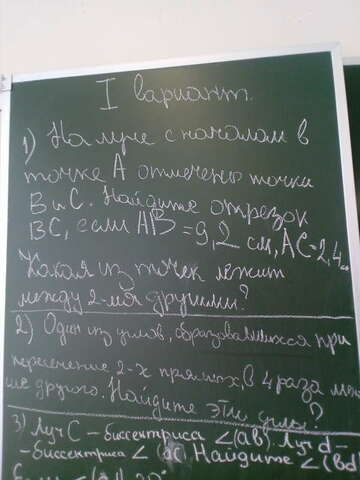 I вариант.
1) На луче с началом в
точке А отмечены точки
В и С. Найдите отрезок
ВС, если АВ = 9,2 см, АС = 2,4 см
Какая из точек лежит
между 2-мя другими?
2) Один из углов, образовавшихся при
пересечение 2-х прямых, в 4 раза мень
ше другого. Найдите эти углы?
3) Луч С – биссектриса ∠(ab). Луч d –
– биссектриса ∠(ac). Найдите ∠(bd)